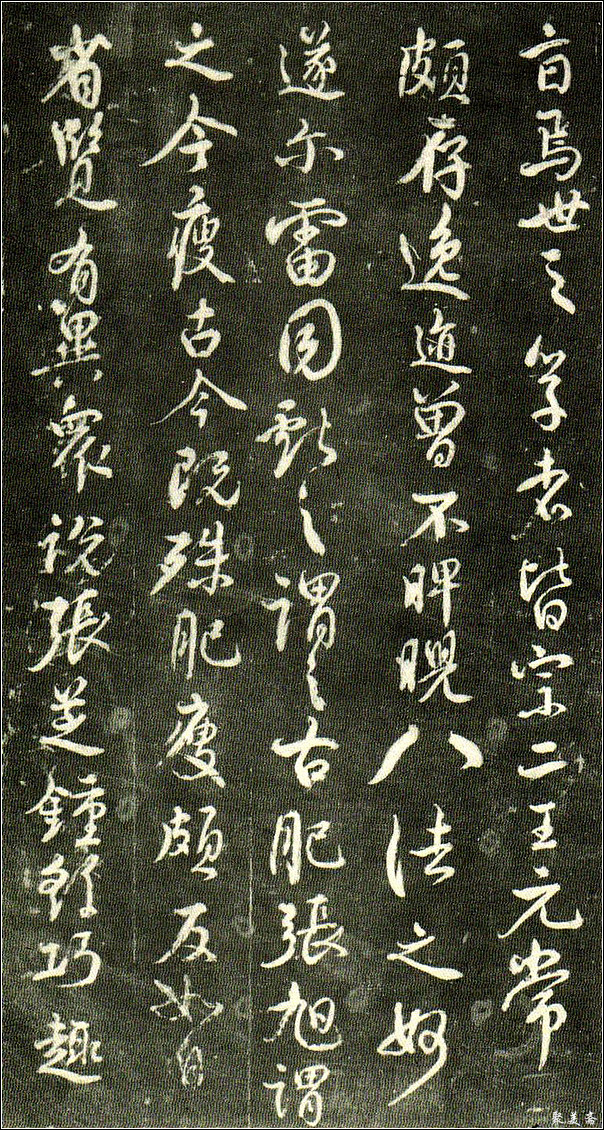 焉世之學者皆宗二王元常
頗存逸迹曾不睥睨八法之妙
遂尔雷同獻之謂之古肥張旭謂
之今瘦古今既殊肥瘦頗反如自
省覽有異衆說張芝鍾繇巧趣
聚美斋